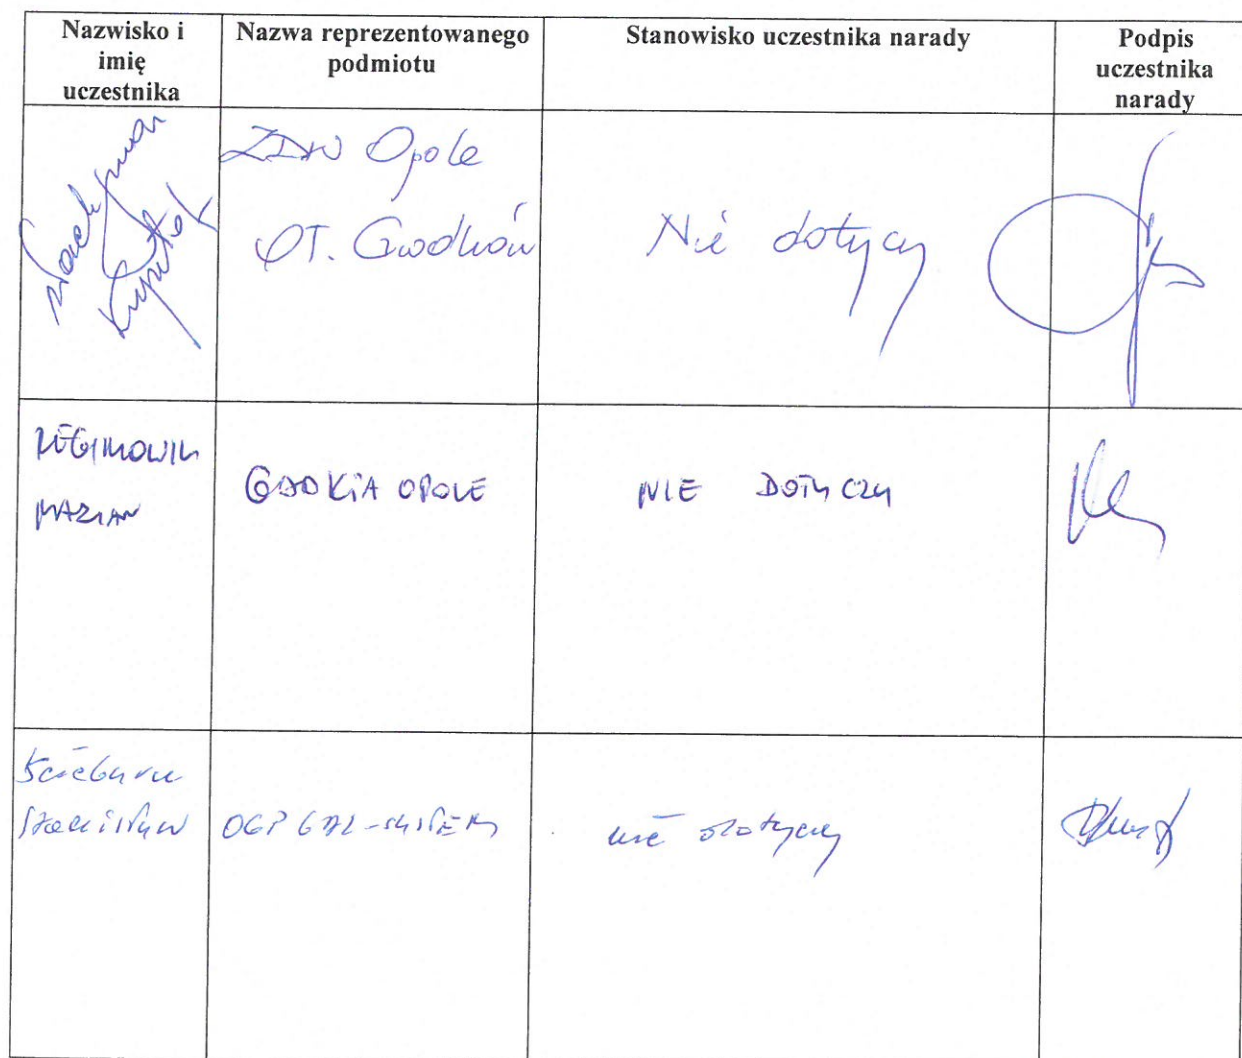 Nazwisko i
imię
uczestnika
Nazwa reprezentowanego
podmiotu
Stanowisko uczestnika narady
Podpis
uczestnika
narady
ZDW Opole
OT. Grodków
Nie dotyczy
MARIAN
GDDKiA OPOLE
NIE DOTYCZY
Stanisław
OGP GAZ-SYSTEM
nie dotyczy